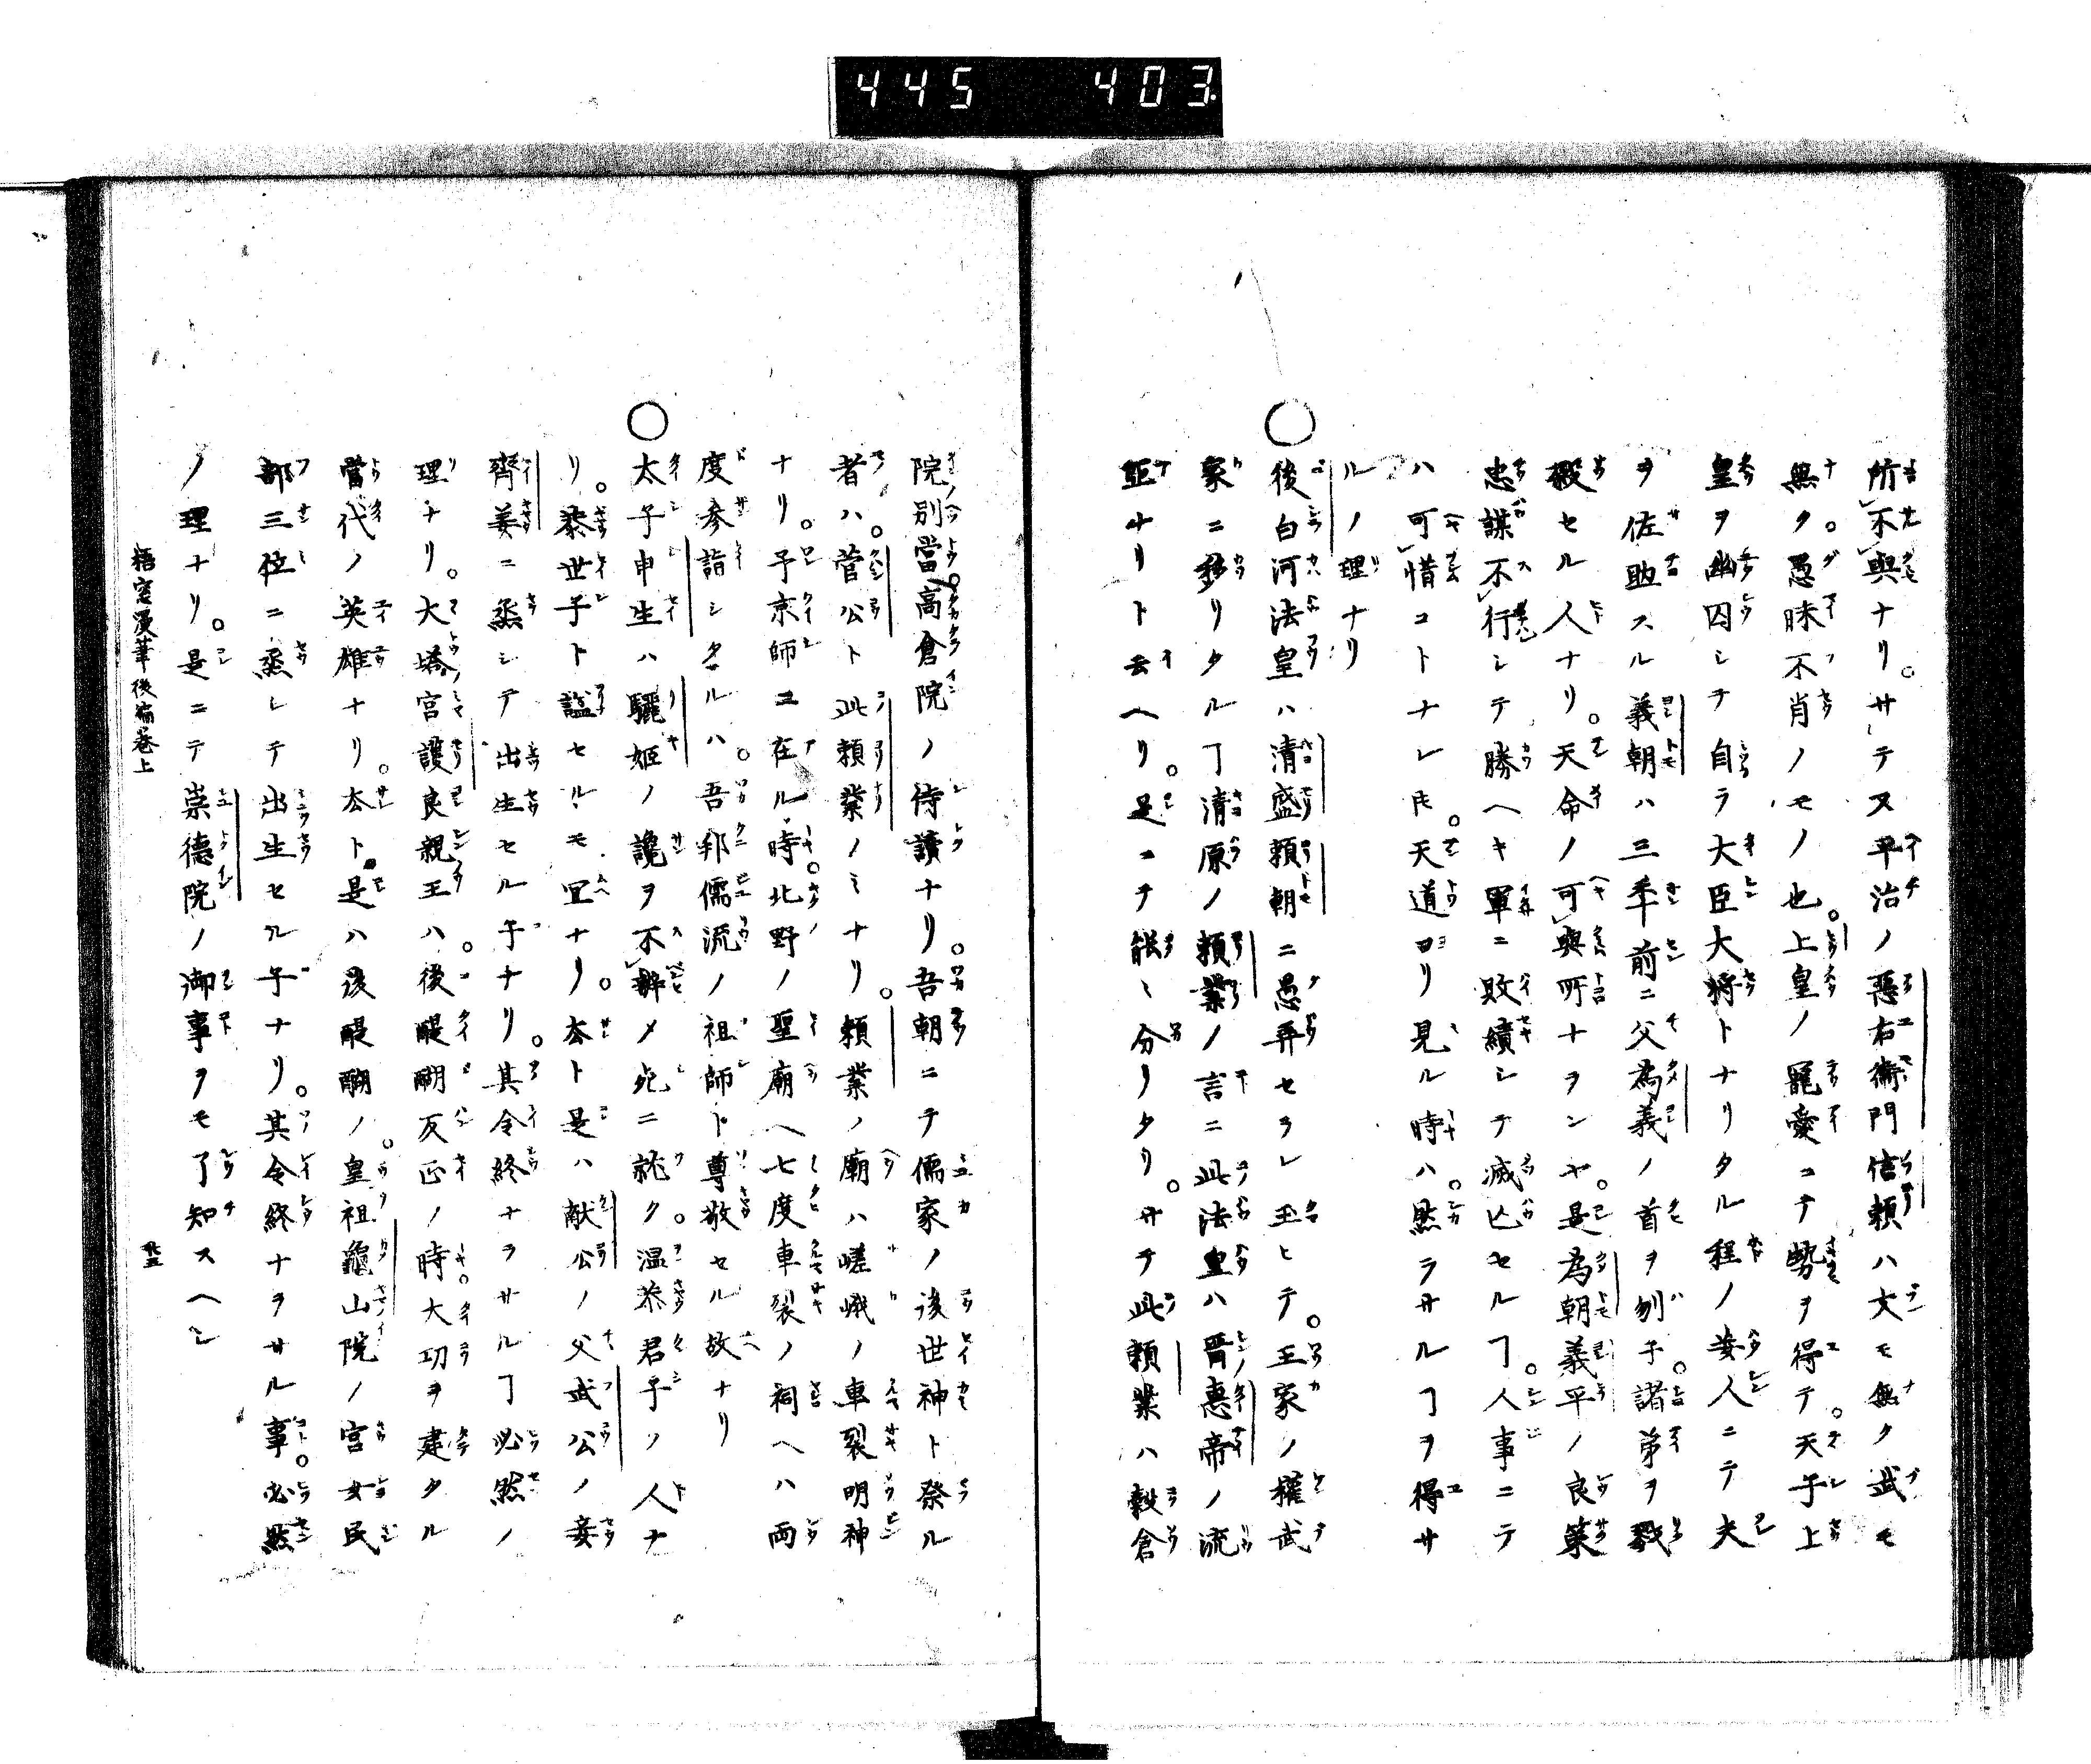 445 403
所不與ナリ。サテ又平治ノ惡右衞門信頼ハ文モ無ク武モ
無ク。愚昧不肖ノモノ也。上皇ノ寵愛ニテ勢ヲ得テ。天子上
皇ヲ幽囚シテ自ラ大臣大將トナリタル程ノ妄人ニテ夫
ヲ佐助スル義朝ハ三年前ニ父為義ノ首ヲ刎子。諸弟ヲ戮
殺セル人ナリ。天命ノ可與所ナランヤ。是為朝義平ノ良策
忠謀不行シテ勝ヘキ軍ニ敗績シテ滅亡セルヿ。人事ニテ
ハ可惜コトナレ𪜈。天道ヨリ見ル時ハ。然ラサルヿヲ得サ
ルノ理ナリ
○後白河法皇ハ清盛頼朝ニ愚弄セラレ玉ヒテ。王家ノ權武
家ニ移リタルヿ清原ノ頼業ノ言ニ此法皇ハ晋惠帝ノ流
亞ナリト云ヘリ。是ニテ能〻分リタリ。サテ此頼業ハ穀倉
院別當高倉院ノ侍讀ナリ。吾朝ニテ儒家ノ後世神ト祭ル
者ハ。菅公ト此頼業ノミナリ。頼業ノ廟ハ嵯峨ノ車裂明神
ナリ。予京師ニ在ル時。北野ノ聖廟ヘ七度車裂ノ祠ヘハ両
度參詣シタルハ。吾邦儒流ノ祖師ト尊敬セル故ナリ
○太子申生ハ驪姫ノ讒ヲ不辨メ死ニ就ク。温恭君子ノ人ナ
リ。恭世子ト諡セルモ宜ナリ。厺ト是ハ献公ノ父武公ノ妾
齊姜ニ烝シテ出生セル子ナリ。其令終ナラサルヿ必然ノ
理ナリ。大塔宮護良親王ハ。後醍醐反正ノ時。大功ヲ建タル
當代ノ英雄ナリ。厺ト是ハ後醍醐ノ。皇祖龜山院ノ宮女民
部三位ニ烝シテ出生セル子ナリ。其令終ナラサル事。必然
ノ理ナリ。是ニテ崇德院ノ御事ヲモ了知スヘシ
梧窓漫筆後編卷上